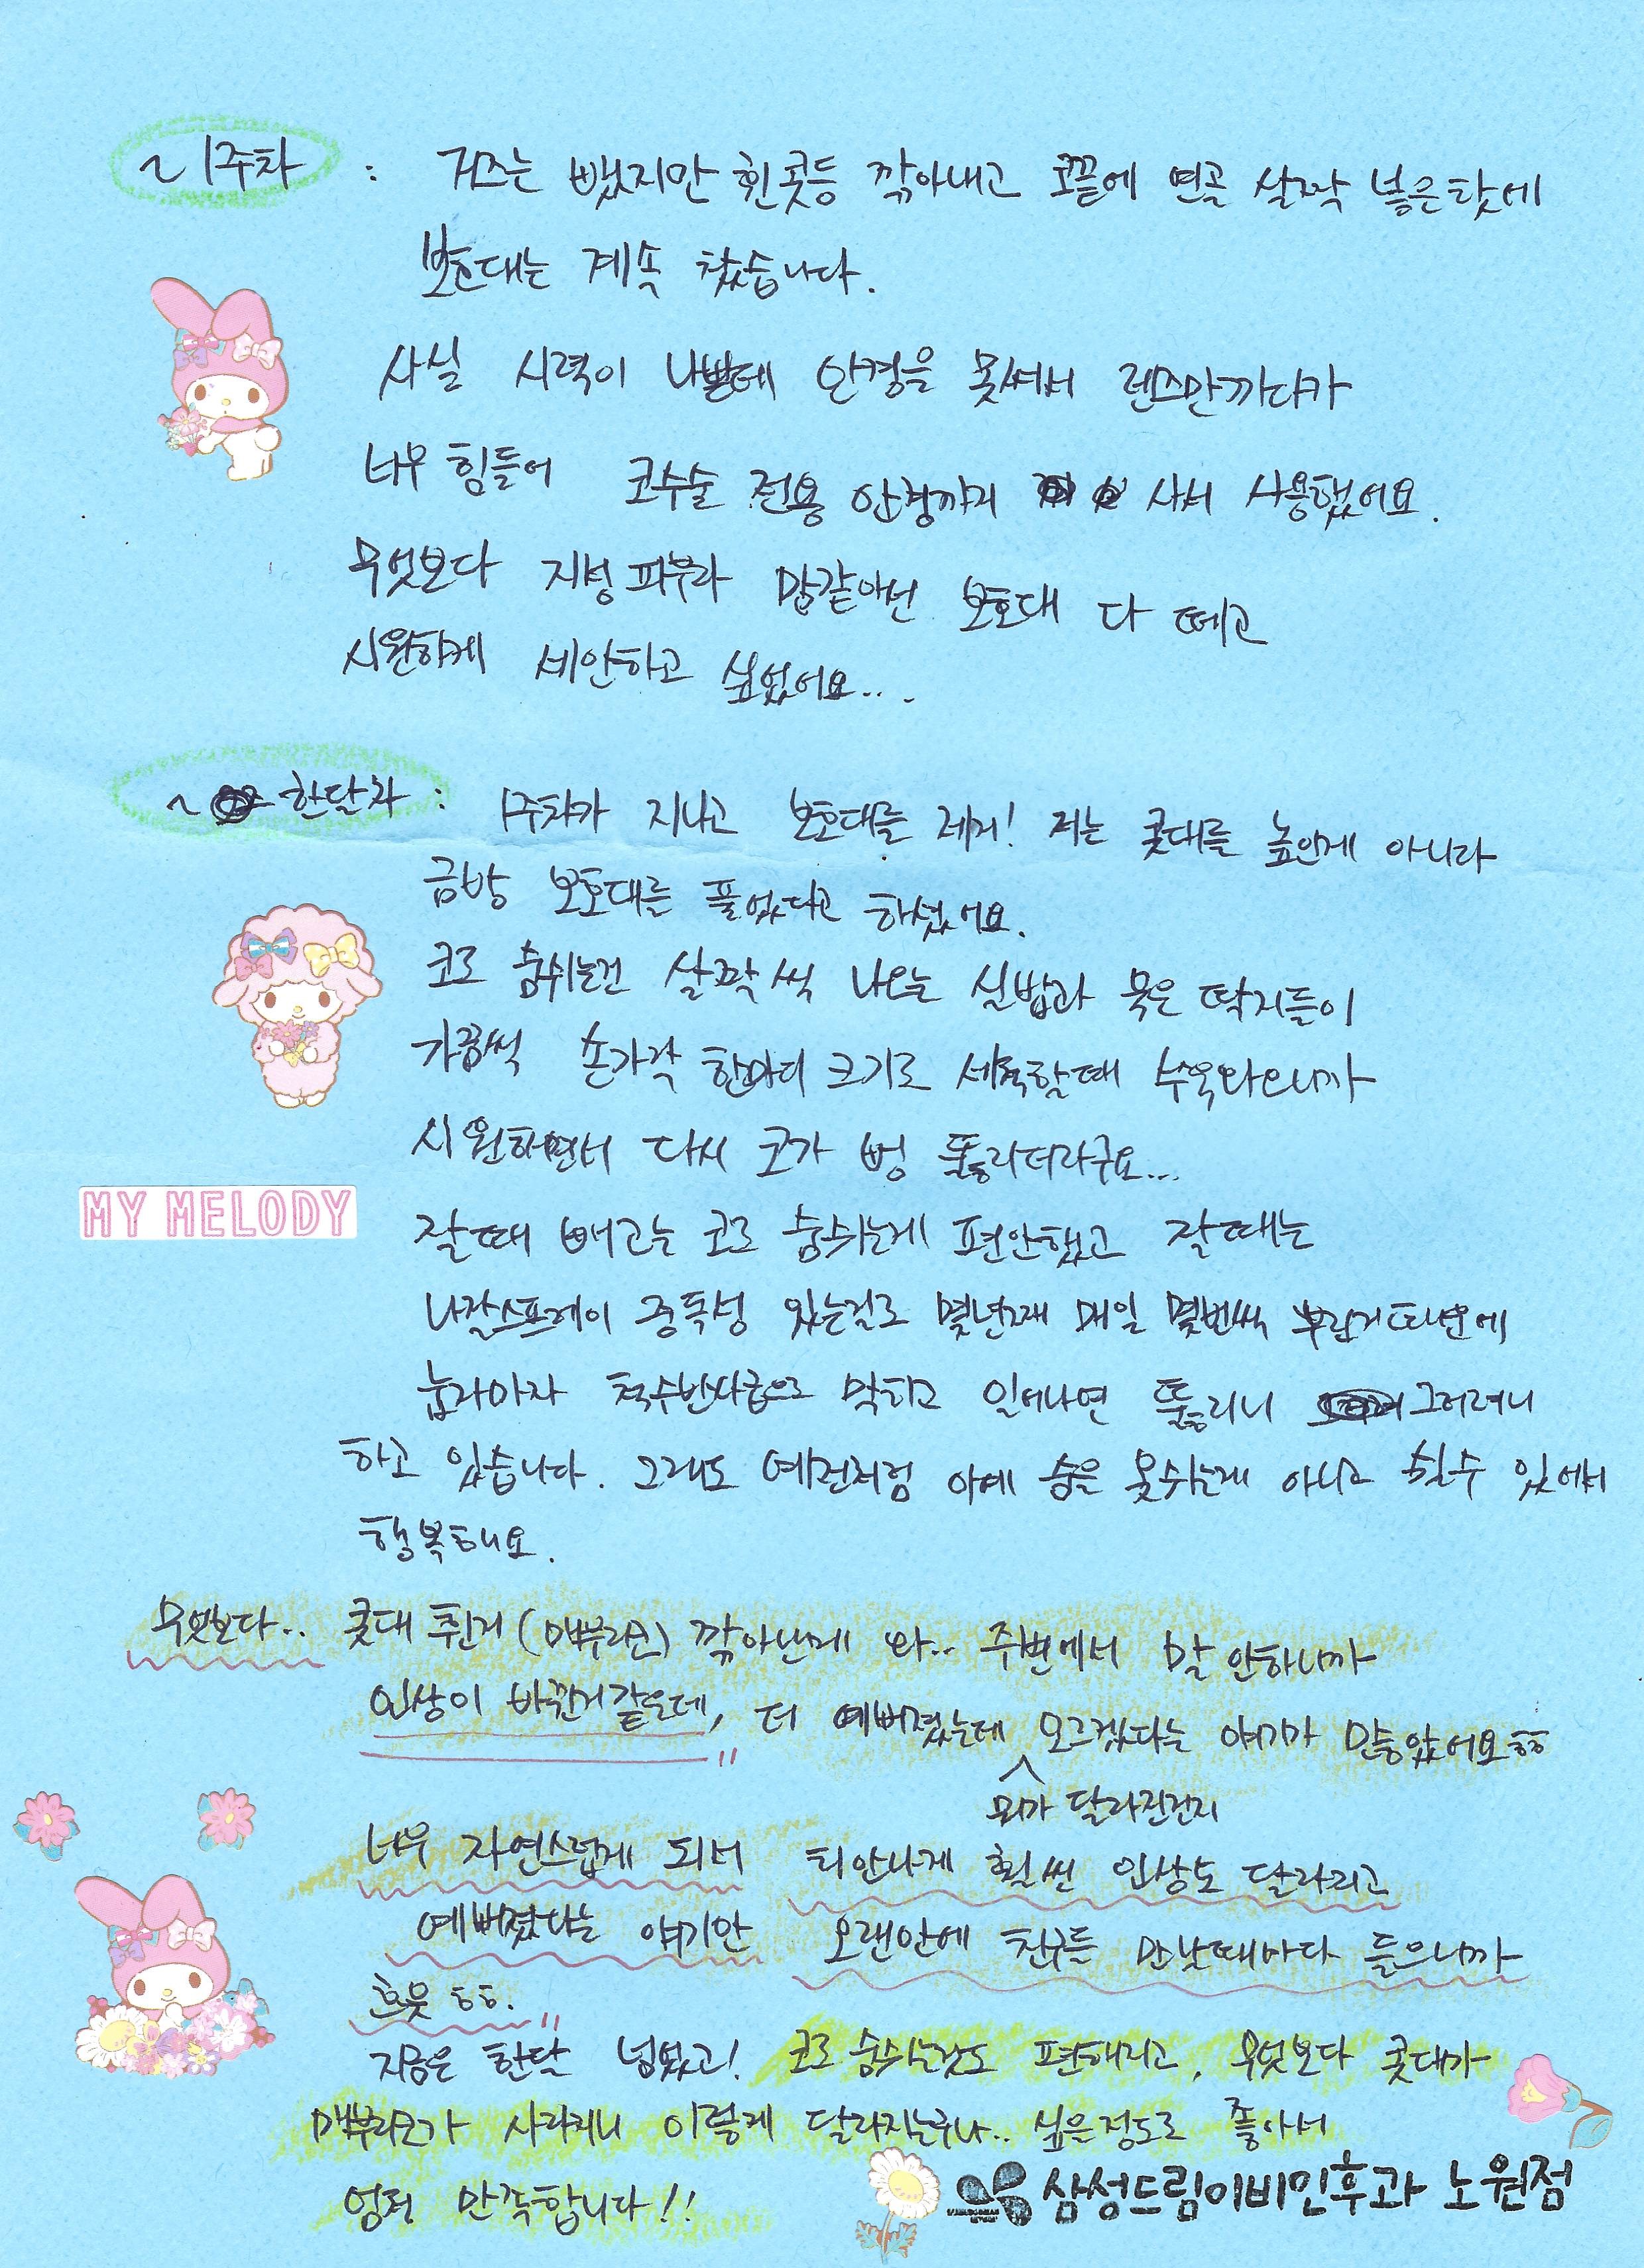 ~1주차 : 거즈는 뺐지만 휜콧등 깎아내고 코끝에 연골 살짝 넣은탓에
보호대는 계속 찼습니다.
사실 시력이 나쁜데 안경을 못써서 렌즈만끼다가
너무 힘들어 코수술 전용 안경까지 사서 사용했어요.
무엇보다 지성피부라 맘같아선 보호대 다 떼고
시원하게 세안하고 싶었어요...
~ 한달차 : 1주차가 지나고 보호대를 제거! 저는 콧대를 높인게 아니라
금방 보호대를 풀었다고 하셨어요.
코로 숨쉬는건 살짝씩 나오는 실밥과 묵은 딱지들이
가끔씩 손가락 한마디 크기로 세척할때 수욱나오니까
시원하면서 다시 코가 뻥 뚫리더라구요...
잘때 빼고는 코로 숨쉬는게 편안했고 잘때는
나잘스프레이 중독성 있는걸로 몇년째 매일 몇번씩 뿌렸기때문에
눕자마자 척수반사급으로 막히고 일어나면 뚫리니 그러려니
하고 있습니다. 그래도 예전처럼 아예 숨을 못쉬는게 아니고 쉴수 있어서
행복해요.
무엇보다.. 콧대 휜거(매부리코) 깎아낸게 와.. 주변에서 말 안하니까
인상이 바뀐거같은데, 더 예뻐졌는데 모르겠다는 얘기가 많았어요ㅎㅎ
뭐가 달라진건지
너무 자연스럽게 되서 티안나게 훨씬 인상도 달라지고
예뻐졌다는 얘기만 오랜만에 친구들 만날때마다 들으니까
흐뭇 ㅎㅎ.
지금은 한달 넘었고! 코로 숨쉬는것도 편해지고, 무엇보다 콧대가
매부리코가 사라지니 이렇게 달라지는구나.. 싶은정도로 좋아서
엄청 만족합니다!!
MY MELODY
삼성드림이비인후과 노원점